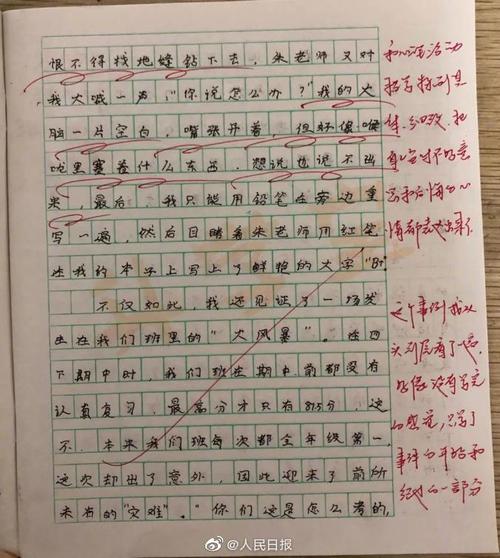 恨不得找地缝钻下去，朱老师又对
我大喊一声，“你说怎么办？”我的大
脑一片空白，嘴张开着，但好像喉
咙里塞着什么东西，想说也说不出
来，最后，我只能用铅笔在旁边重
写一遍，然后目睹着朱老师用红笔
在我的本子上写上了鲜艳的大字“B”。
不仅如此，我还见证了一场发
生在我们班里的“大风暴”。在四
下期中时，我们班在期中前都没有
认真复习，最高分才只有815分，这
不，本来我们班每次都全年级第一，
这次却出了意外，因此迎来了前所
未有的“灾难”。“你们这是怎么考的，
和心理活动
描写特别具
体、细致，把
真
对不
意
和后悔的心
情都表达出来
这个事例我从
头到尾看了一遍，
好像没有写完
的感觉，只写了
事件的开始和
经过的一部分
@人民日报